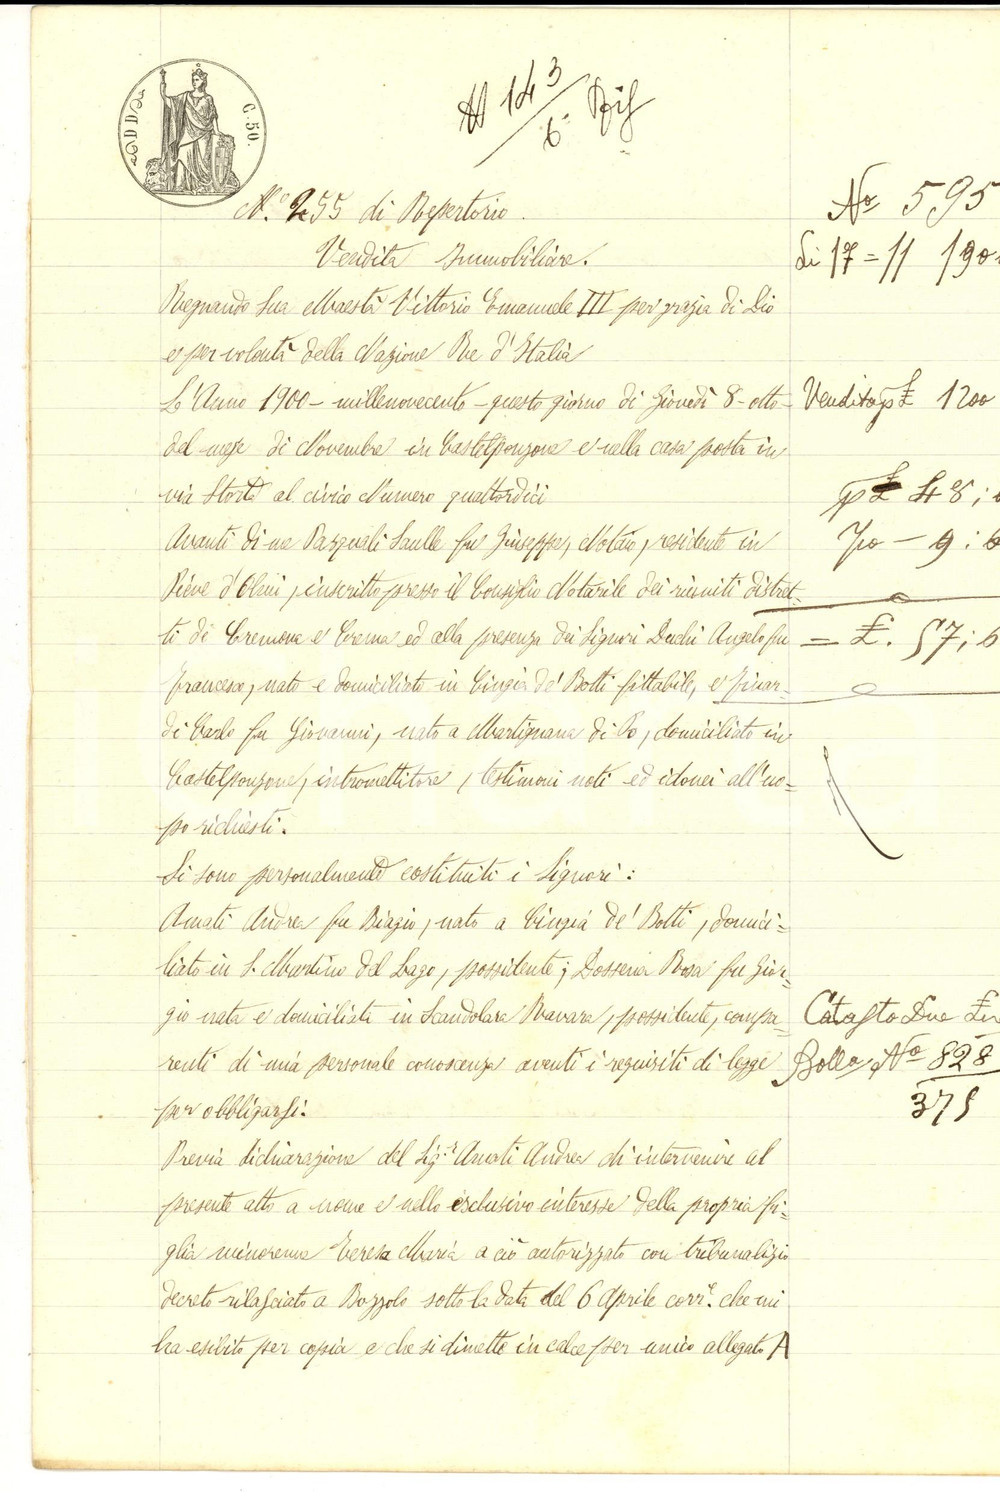 C. 50.
143/6 Rif
N.º 255 di Repertorio.
Nº 595
Vendita Immobiliare.
Li 17 = 11 190
Regnando Sua Maestà Vittorio Emanuele III per grazia di Dio
e per volontà della Nazione Re d'Italia
L'Anno 1900 - millenovecento - questo giorno di Giovedì 8 - otto -
Vendita p £ 1200
del mese di Novembre in Castelponzone e nella casa posta in
via Storta al civico Numero quattordici
p £ 48 ;
Avanti di me Pasquali Saulle fu Giuseppe, Notaio, residente in
7/10 - 9 : 6
Pieve d'Olmi, inscritto presso il Consiglio Notarile dei riuniti distret-
ti di Cremona e Crema ed alla presenza dei Signori Dachi Angelo fu
= £. 57 ; 6
Francesco, nato e domiciliato in Cingia de' Botti fittabile, e Finar-
di Carlo fu Giovanni, nato a Martignana di Po, domiciliato in
Castelponzone, intromettitore, testimoni noti ed idonei all'uo=
po richiesti.
Si sono personalmente costituiti i Signori:
Amati Andrea fu Biagio, nato a Cingia de' Botti, domici=
liato in S. Martino del Lago, possidente; Dossena Rosa fu Gior=
gio nata e domiciliata in Scandolara Ravara, possidente, compa=
Catasto Due £
renti di mia personale conoscenza aventi i requisiti di legge
Bolla Nº 828
per obbligarsi.
375
Previa dichiarazione del Sig.r Amati Andrea di intervenire al
presente atto a nome e nello esclusivo interesse della propria fi=
glia minorenne Teresa Maria a ciò autorizzato con tribunalizio
decreto rilasciato a Bozzolo sotto la data del 6 Aprile corr.e che mi
ha esibito per copia e che si dimette in calce per unico allegato A